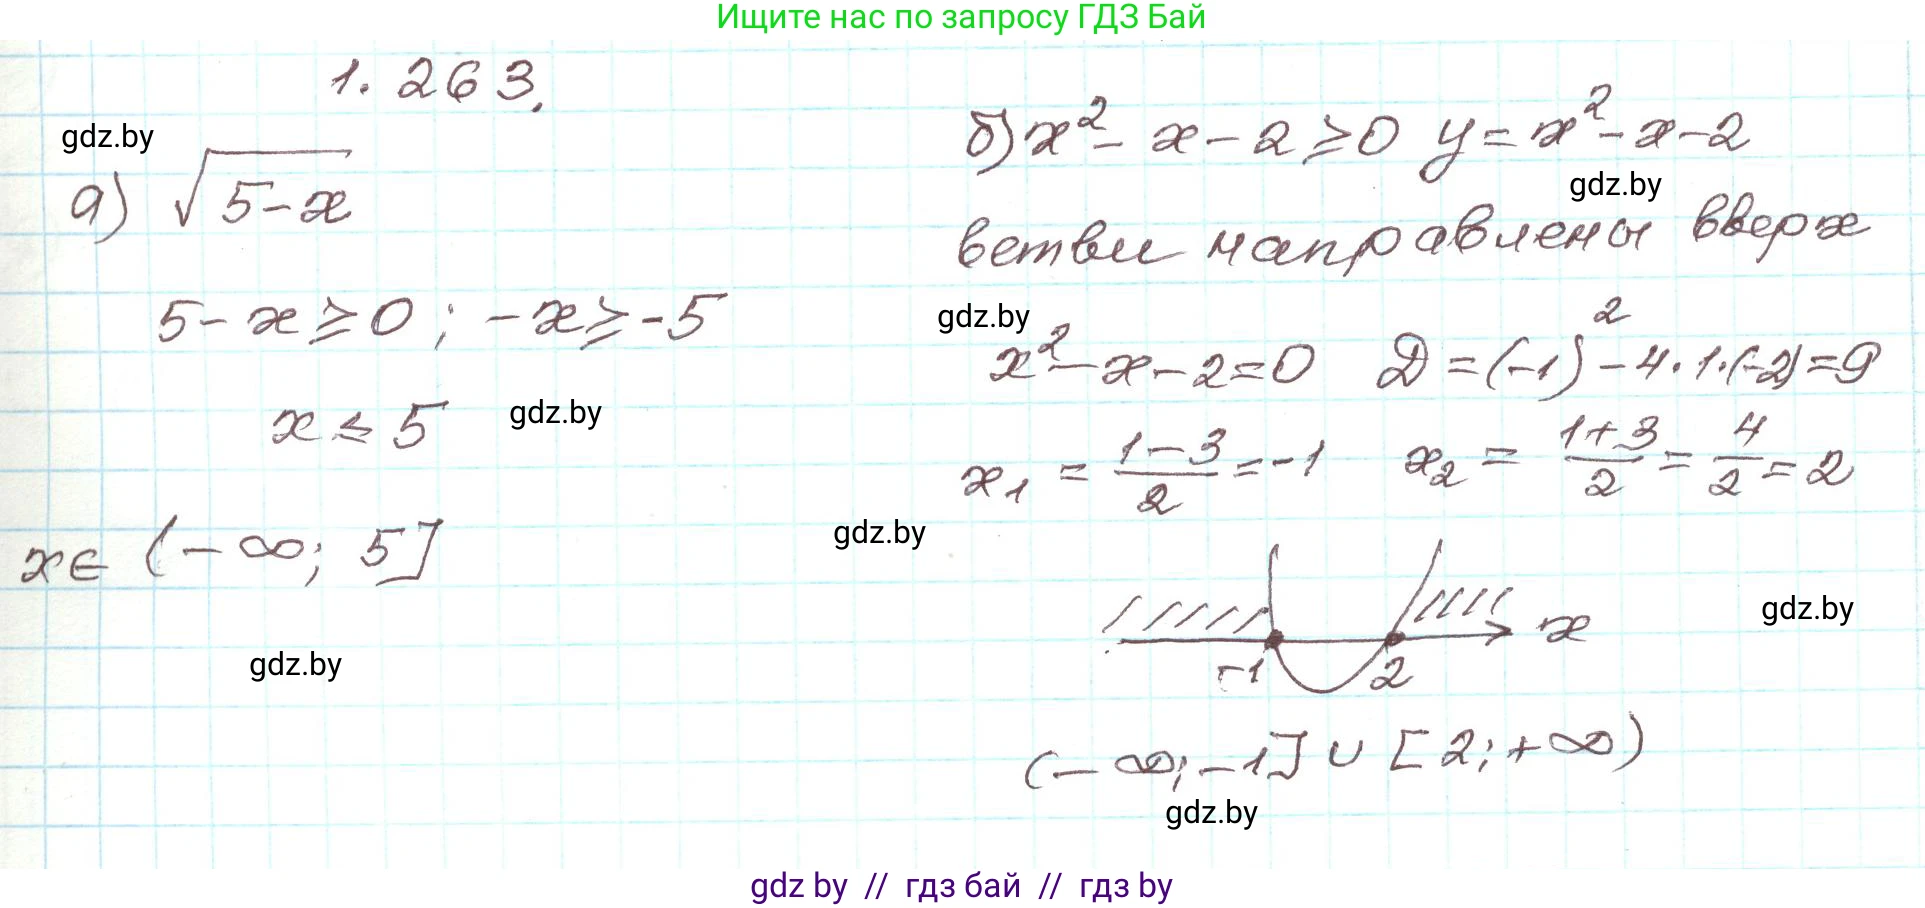 Ищите нас по запросу ГДЗ Бай
1.263.
gdz.by
а) √(5-x)
5-x≥0; -x≥-5
x≤5
gdz.by
x∈ (-∞; 5]
gdz.by
б) x²-x-2≥0 y=x²-x-2
gdz.by
ветви направлены вверх
gdz.by
x²-x-2=0 Д=(-1)²-4·1·(-2)=9
x₁ = (1-3)/2 = -1 x₂ = (1+3)/2 = 4/2 = 2
gdz.by
x
gdz.by
-1 2
(-∞; -1] ∪ [2; +∞)
gdz.by
gdz by // гдз бай // гдз by